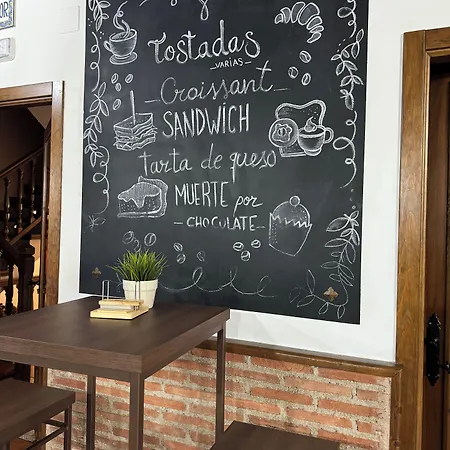 Tostadas
-VARIAS-
Croissant
SANDWÍCH
tarta de queso
MUERTE por
- CHOCOLATE -